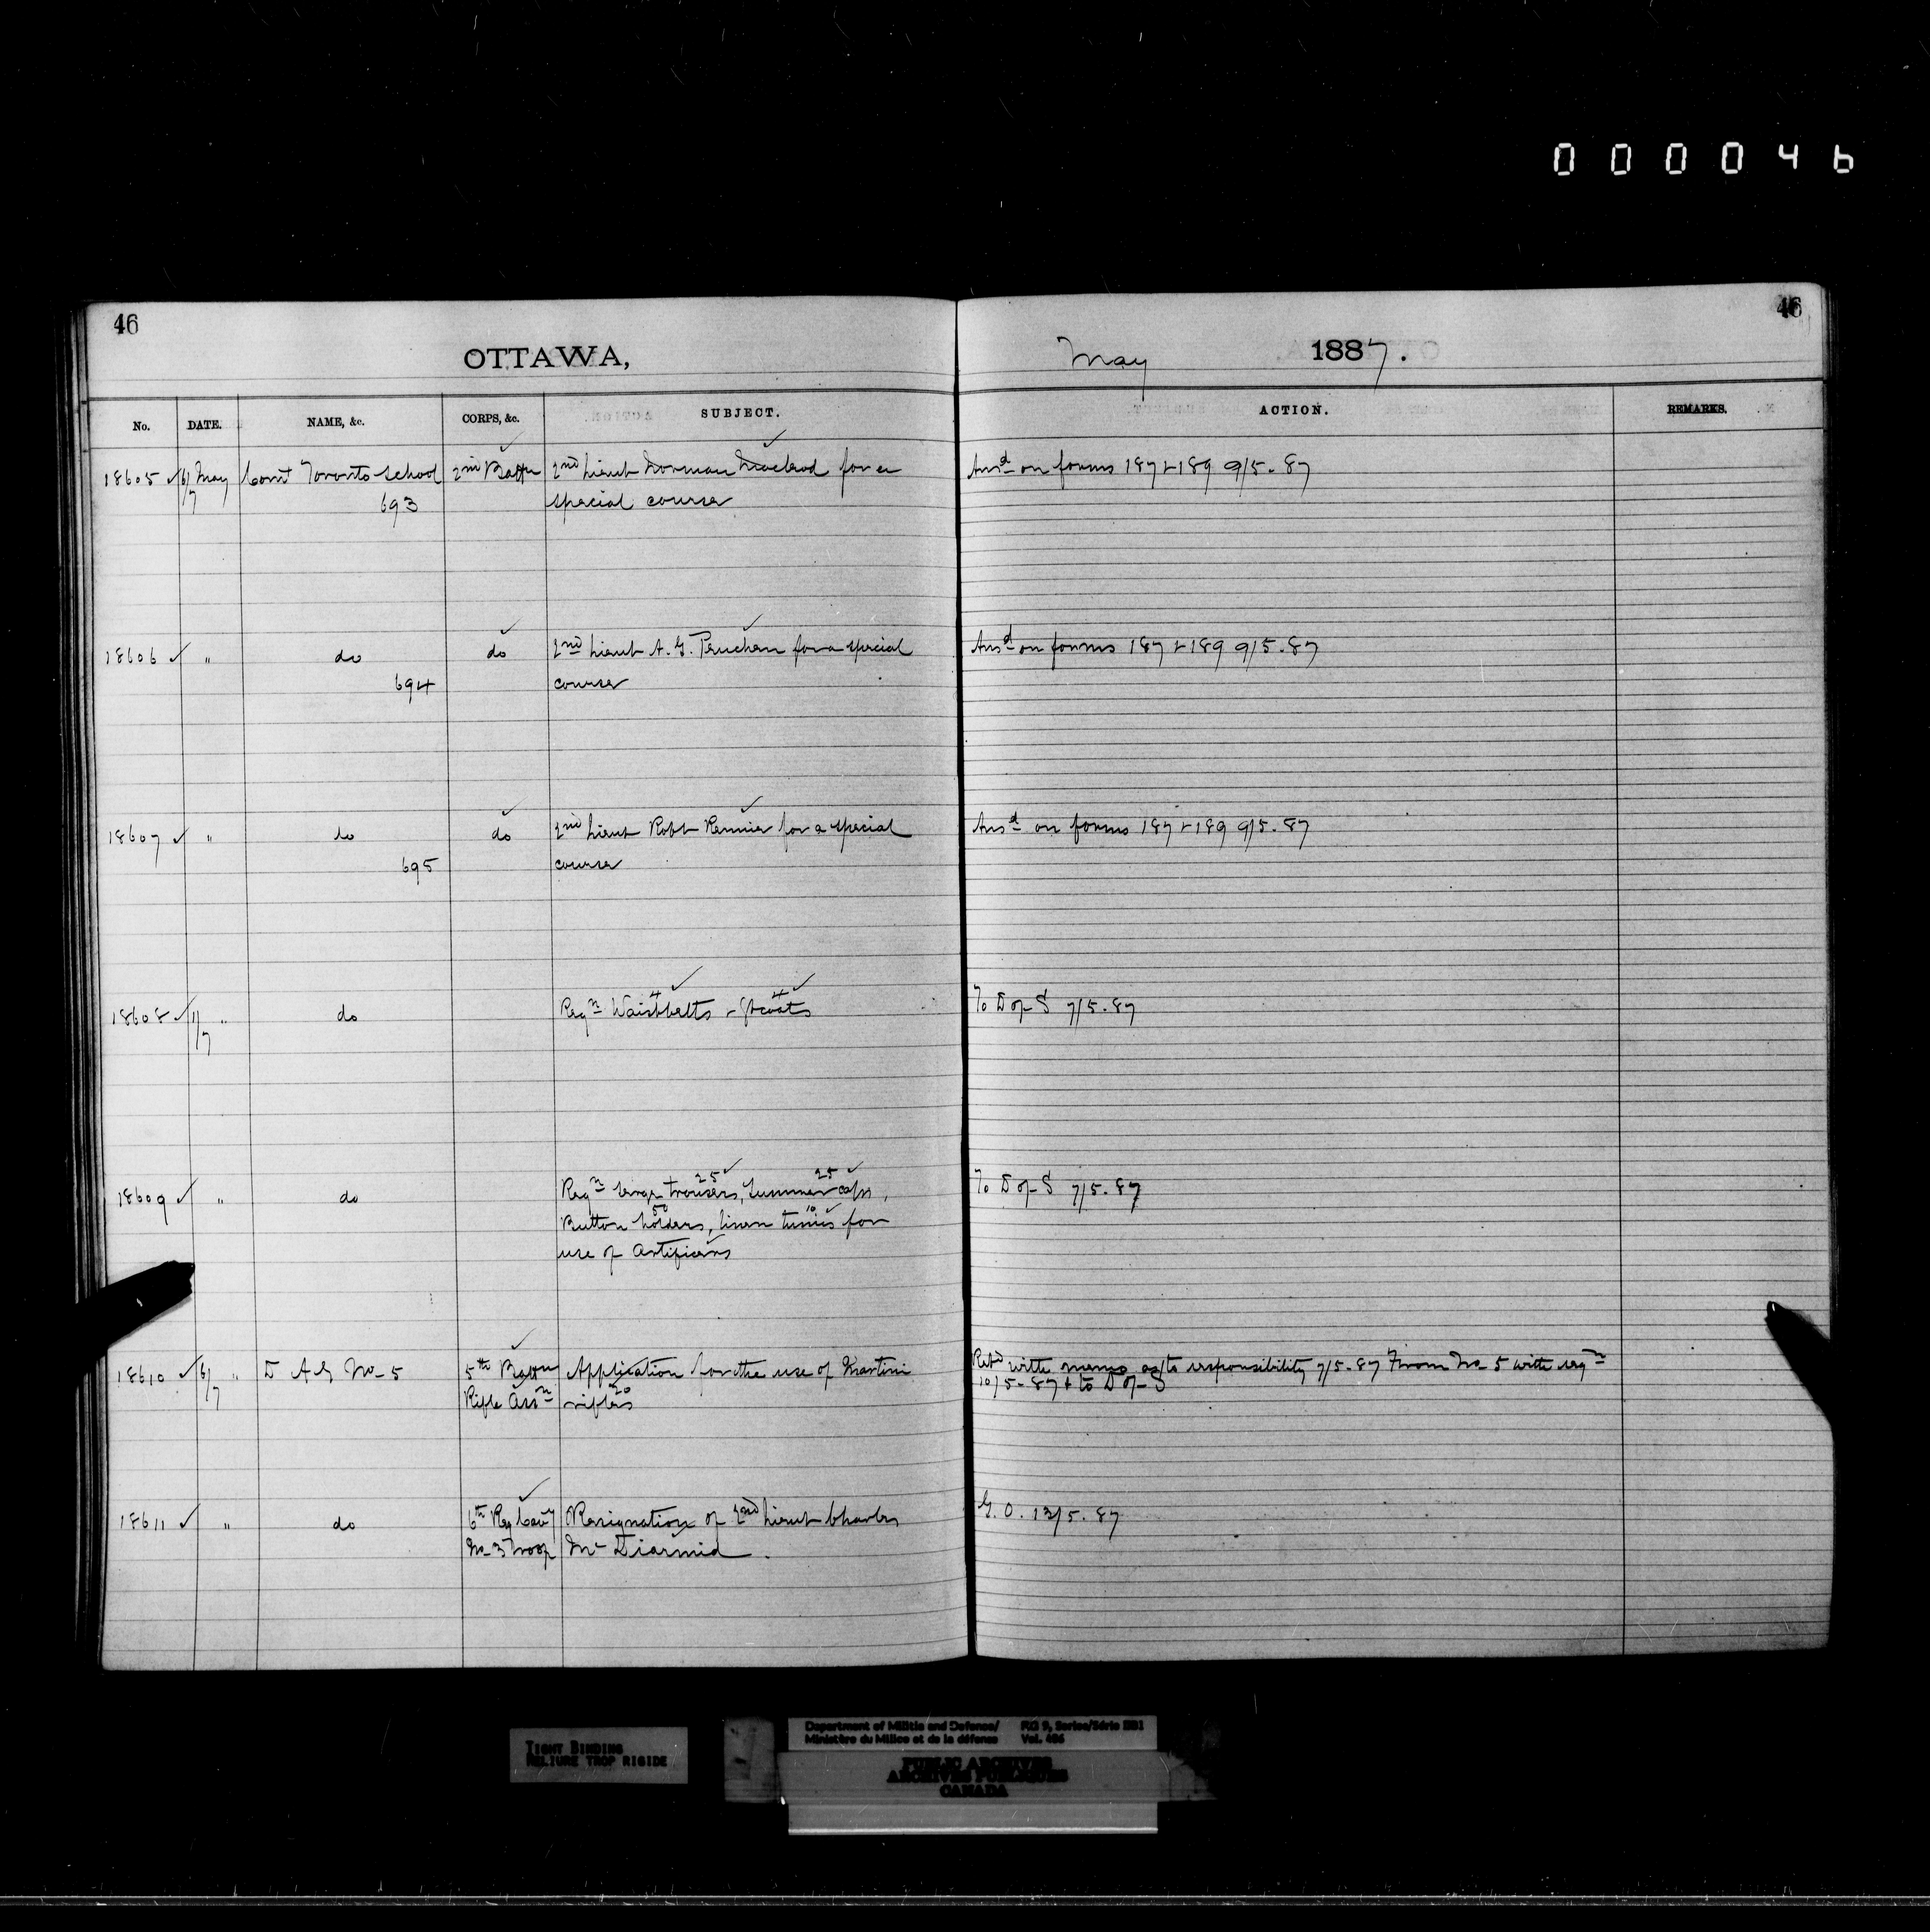 000046
46
46
OTTAWA,
May 1887.
No. DATE. NAME, &c. CORPS, &c. SUBJECT. ACTION. REMARKS.
18605 ✓ 6/7 May Comt Toronto School 2nd Battn 2nd Lieut Norman Macleod for a Ansd on forms 187 & 189 9/5-87
693 special course
18606 ✓ " do do 2nd Lieut A. G. Peuchen for a special Ansd on forms 187 & 189 9/5-87
694 course
18607 ✓ " do do 2nd Lieut Robt Rennie for a special Ansd on forms 187 & 189 9/5-87
695 course
4 4
18608 ✓ 11/7 " do Reqn Waistbelts - Gtcoats To D of S 7/5-87
25 25
18609 ✓ " do Reqn serge trousers, Summer caps, To D of S 7/5-87
50 10
Button holders, linen tunics for
use of Artificers
18610 ✓ 6/7 " D A G No 5 5th Battn Application for the use of Martini Retd with memo as to responsibility 7/5-87 From No 5 with reqn
20
Rifle Assn rifles 10/5-87 & to D of S
18611 ✓ " do 6th Reg Cavy Resignation of 2nd Lieut Charles G. O. 13/5-87
No 3 Troop Mc Diarmid.
TIGHT BINDING
RELIURE TROP RIGIDE
Department of Militia and Defence/ RG 9, Series/Série IIB1
Ministère du Milice et de la défense Vol. 486
PUBLIC ARCHIVES
ARCHIVES PUBLIQUES
CANADA